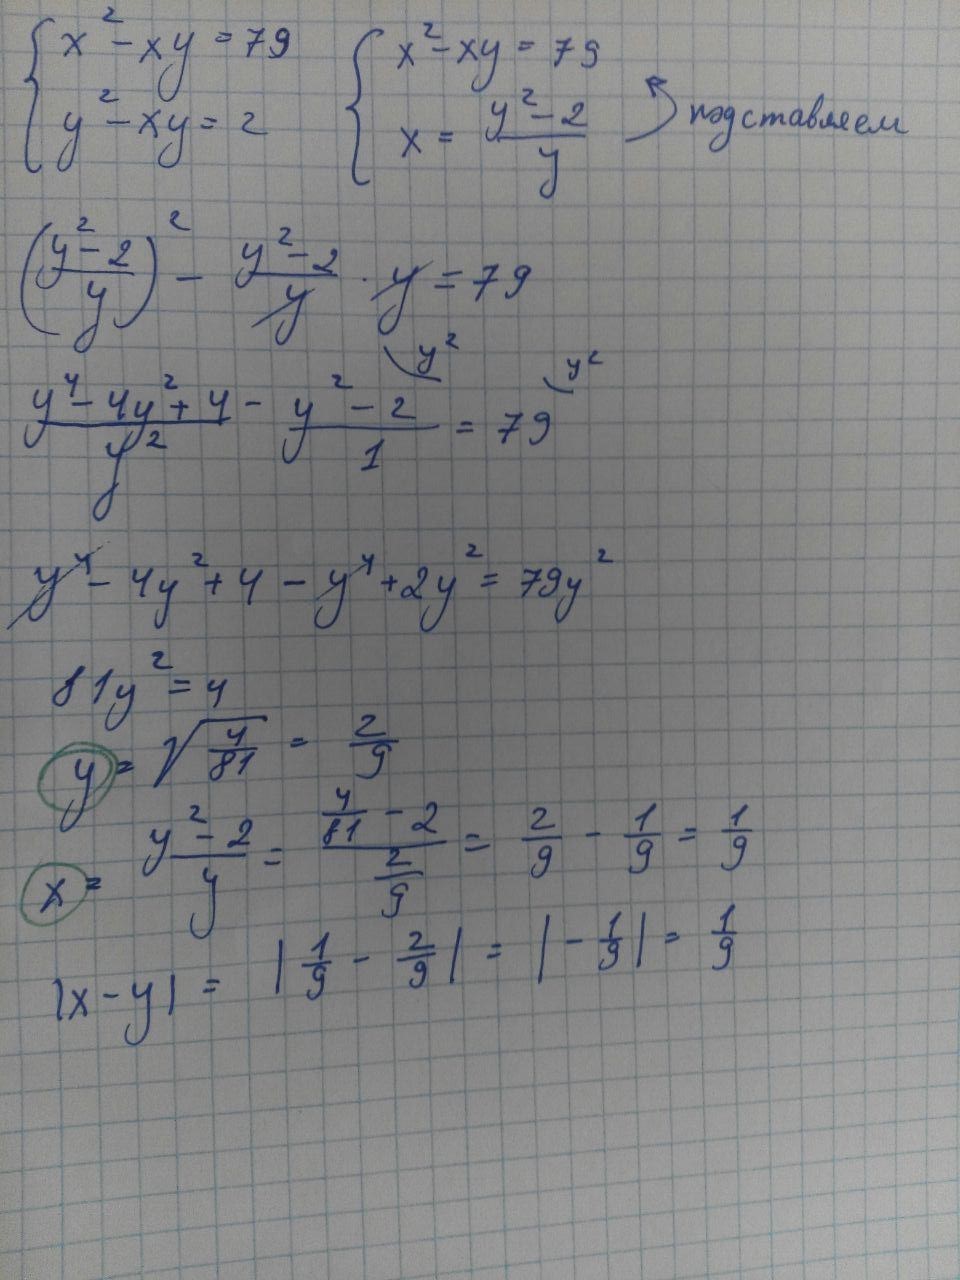 { x² - xy = 79   { x² - xy = 79
{ y² - xy = 2   { x = (y² - 2)/y   подставляем
((y² - 2)/y)² - (y² - 2)/y · y = 79
(y⁴ - 4y² + 4)/y² - (y² - 2)/1 \y² = 79 \y²
y⁴ - 4y² + 4 - y⁴ + 2y² = 79y²
81y² = 4
y = √(4/81) = 2/9
x = (y² - 2)/y = (4/81 - 2)/(2/9) = 2/9 - 1/9 = 1/9
|x - y| = |1/9 - 2/9| = |-1/9| = 1/9